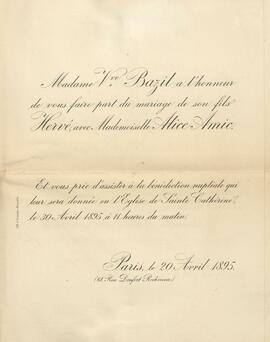 Madame Vve Bazil a l'honneur
de vous faire part du mariage de son fils
Hervé, avec Mademoiselle Alice Amic.
Et vous prie d'assister à la bénédiction nuptiale qui
leur sera donnée en l'Eglise de Sainte Cathérine,
le 30 Avril 1895 à 11 heures du matin.
Paris, le 20 Avril 1895.
Rue Denfert Rochereau)